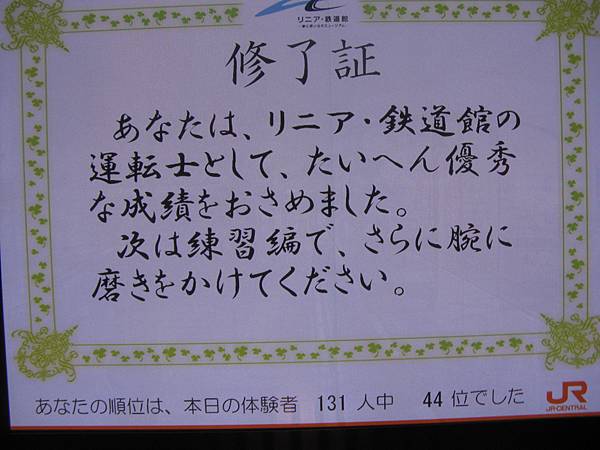 リニア・鉄道館
修了証
あなたは、リニア・鉄道館の
運転士として、たいへん優秀
な成績をおさめました。
次は練習編で、さらに腕に
磨きをかけてください。
あなたの順位は、本日の体験者 131 人中 44 位でした
JR
JR-CENTRAL